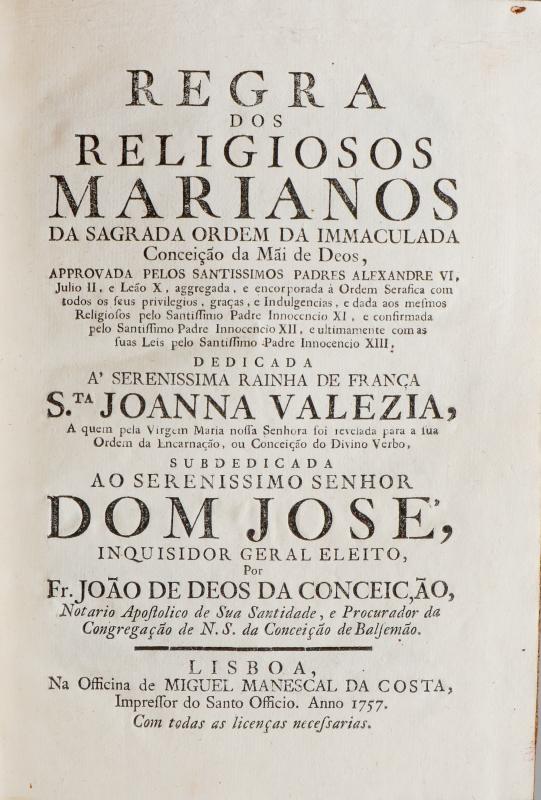 REGRA
DOS
RELIGIOSOS
MARIANOS
DA SAGRADA ORDEM DA IMMACULADA
Conceição da Mãi de Deos,
APPROVADA PELOS SANTISSIMOS PADRES ALEXANDRE VI,
Julio II, e Leão X, aggregada, e encorporada à Ordem Serafica com
todos os ſeus privilegios, graças, e Indulgencias, e dada aos meſmos
Religioſos pelo Santiſſimo Padre Innocencio XI, e confirmada
pelo Santiſſimo Padre Innocencio XII, e ultimamente com as
ſuas Leis pelo Santiſſimo Padre Innocencio XIII.
DEDICADA
A' SERENISSIMA RAINHA DE FRANÇA
S.TA JOANNA VALEZIA,
A quem pela Virgem Maria noſſa Senhora foi revelada para a ſua
Ordem da Encarnação, ou Conceição do Divino Verbo,
SUBDEDICADA
AO SERENISSIMO SENHOR
DOM JOSE',
INQUISIDOR GERAL ELEITO,
Por
Fr. JOÃO DE DEOS DA CONCEIC,ÃO,
Notario Apoſtolico de Sua Santidade, e Procurador da
Congregação de N. S. da Conceição de Balſemão.
LISBOA,
Na Officina de MIGUEL MANESCAL DA COSTA,
Impreſſor do Santo Officio. Anno 1757.
Com todas as licenças neceſsarias.